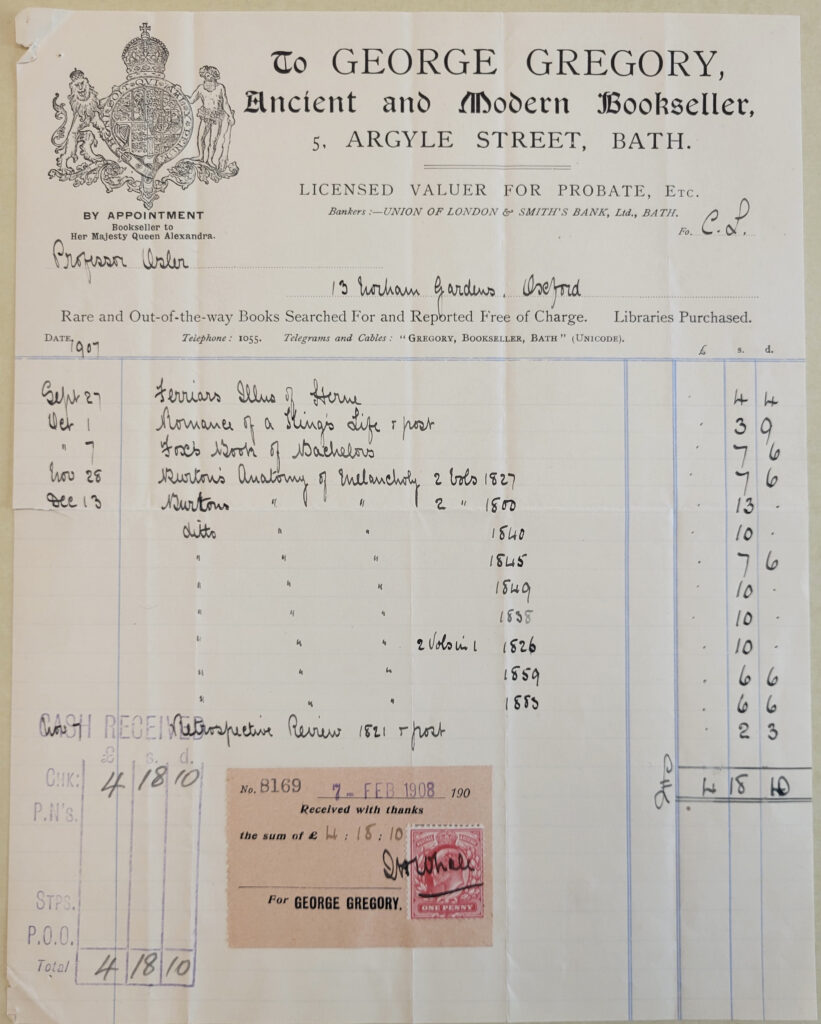 To GEORGE GREGORY,
Ancient and Modern Bookseller,
5, ARGYLE STREET, BATH.
LICENSED VALUER FOR PROBATE, Etc.
Bankers:—UNION OF LONDON & SMITH'S BANK, Ltd., BATH.
BY APPOINTMENT
Bookseller to
Her Majesty Queen Alexandra.
Fo. C. L.
Professor Osler
13 Norham Gardens, Oxford
Rare and Out-of-the-way Books Searched For and Reported Free of Charge. Libraries Purchased.
DATE 1907 Telephone: 1055. Telegrams and Cables: "GREGORY, BOOKSELLER, BATH" (UNICODE). £ s. d.
Sept 27 Ferriars Illus of Sterne 4 4
Oct 1 Romance of a King's Life + post 3 9
" 7 Foxs Book of Bachelors 7 6
Nov 28 Burton's Anatomy of Melancholy 2 Vols 1827 7 6
Dec 13 Burtons " " 2 " 1800 13 .
ditto " " 1840 10 .
" " " 1845 7 6
" " " 1849 10 .
" " " 1838 10 .
" " " 2 Vols in 1 1826 10 .
" " " 1859 6 6
" " " 1883 6 6
Nov 7 Retrospective Review 1821 + post 2 3
4 18 10
CASH RECEIVED
£ s. d.
CHK: 4 18 10
P.N's.
STPS.
P.O.O.
Total 4 18 10
No. 8169 7 - FEB 1908 190
Received with thanks
the sum of £ 4 : 18 : 10
For GEORGE GREGORY.
ONE PENNY